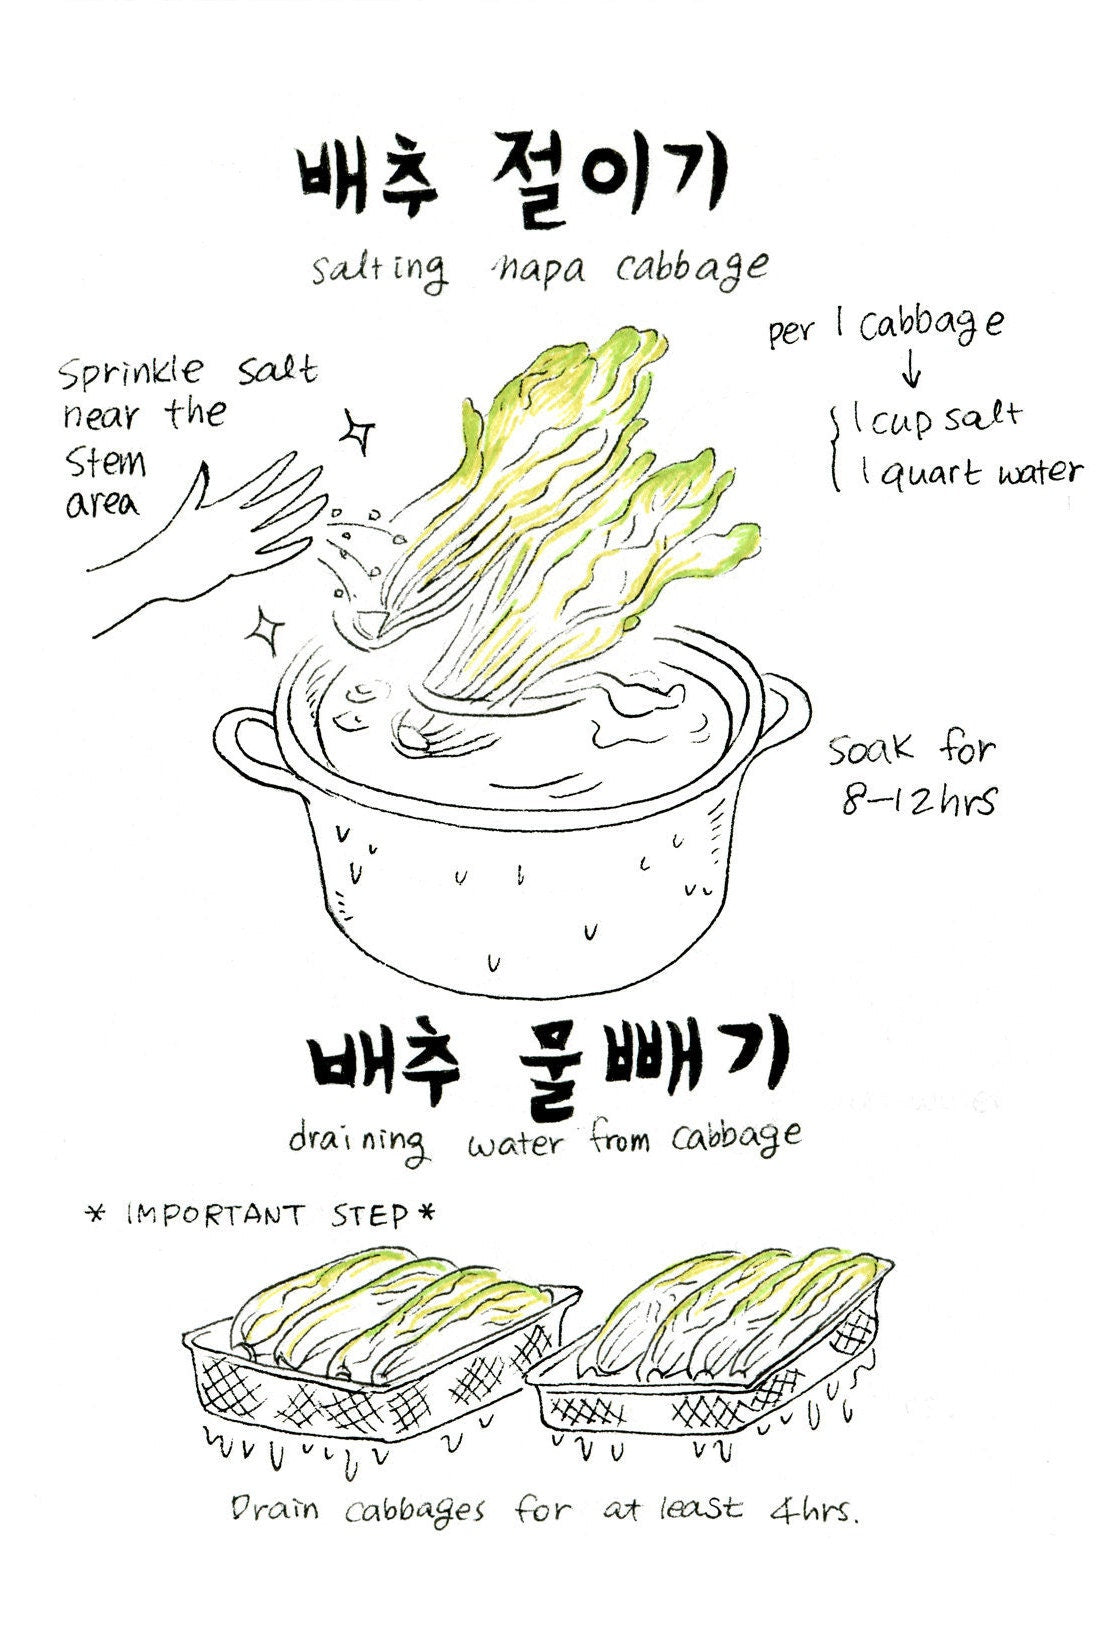 배추 절이기
salting napa cabbage
per 1 cabbage
1 cup salt
1 quart water
Sprinkle salt
near the
stem
area
soak for
8-12hrs
배추 물빼기
draining water from cabbage
* IMPORTANT STEP *
Drain cabbages for at least 4hrs.